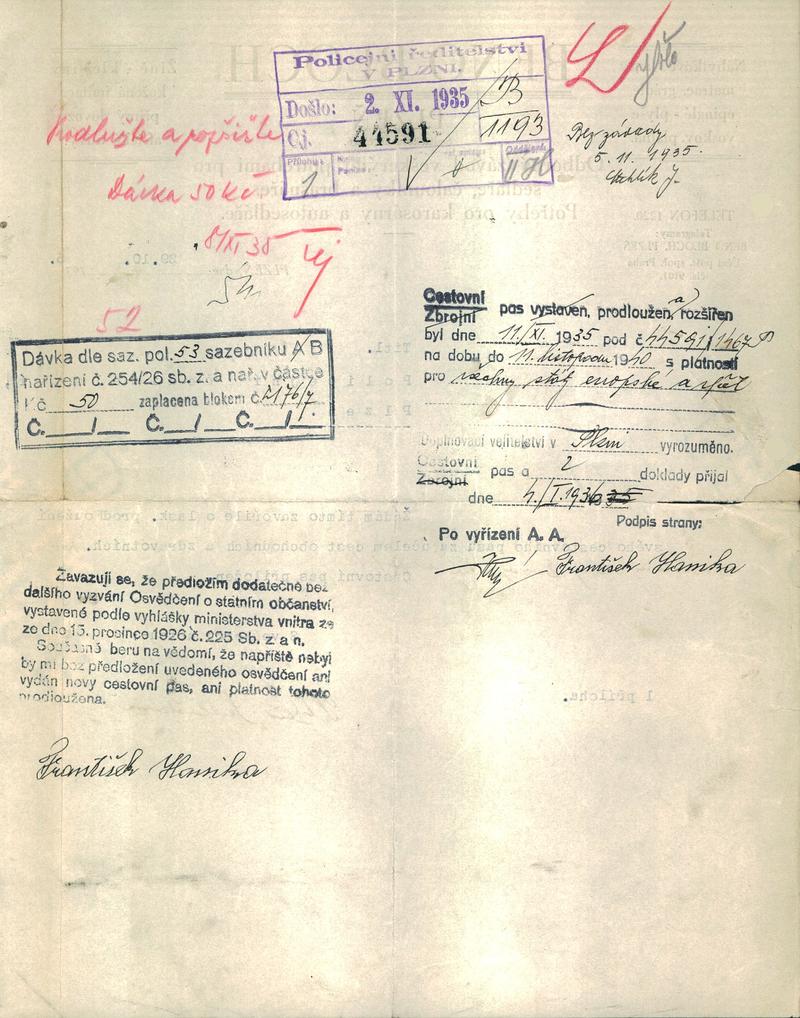 Policejní ředitelství
V PLZNI.
Došlo: 2. XI. 1935
Čj. 44591
B
1193
Příloha
1
Oddělení
II
Bez závady
5. 11. 1935.
J.
Dávka 50 Kč
8/XI 35
52
Dávka dle saz. pol. 53 sazebníku A B
nařízení č. 254/26 sb. z. a nař. v částce
Kč 50 zaplacena blokem č. 2176/7.
Č. / Č. / Č. /
Cestovní
Zbrojní pas vystaven, prodloužen, a rozšířen
byl dne 11/XI. 1935 pod č 44591/1467
na dobu do 11. listopadu 1940 s platností
pro všechny státy evropské a zpět
Doplňovací velitelství v Plzni vyrozuměno.
Cestovní
Zbrojní pas a 2 doklady přijal
dne 4./I. 1936 35
Podpis strany:
Po vyřízení A. A.
František Hanika
Zavazuji se, že předložím dodatečně bez
dalšího vyzvání Osvědčení o státním občanství,
vystavené podle vyhlášky ministerstva vnitra ze
ze dne 15. prosince 1926 č. 225 Sb. z. a n.
Současně beru na vědomí, že napříště nebyl
by mi bez předložení uvedeného osvědčení ani
vydán nový cestovní pas, ani platnost tohoto
prodloužena.
František Hanika